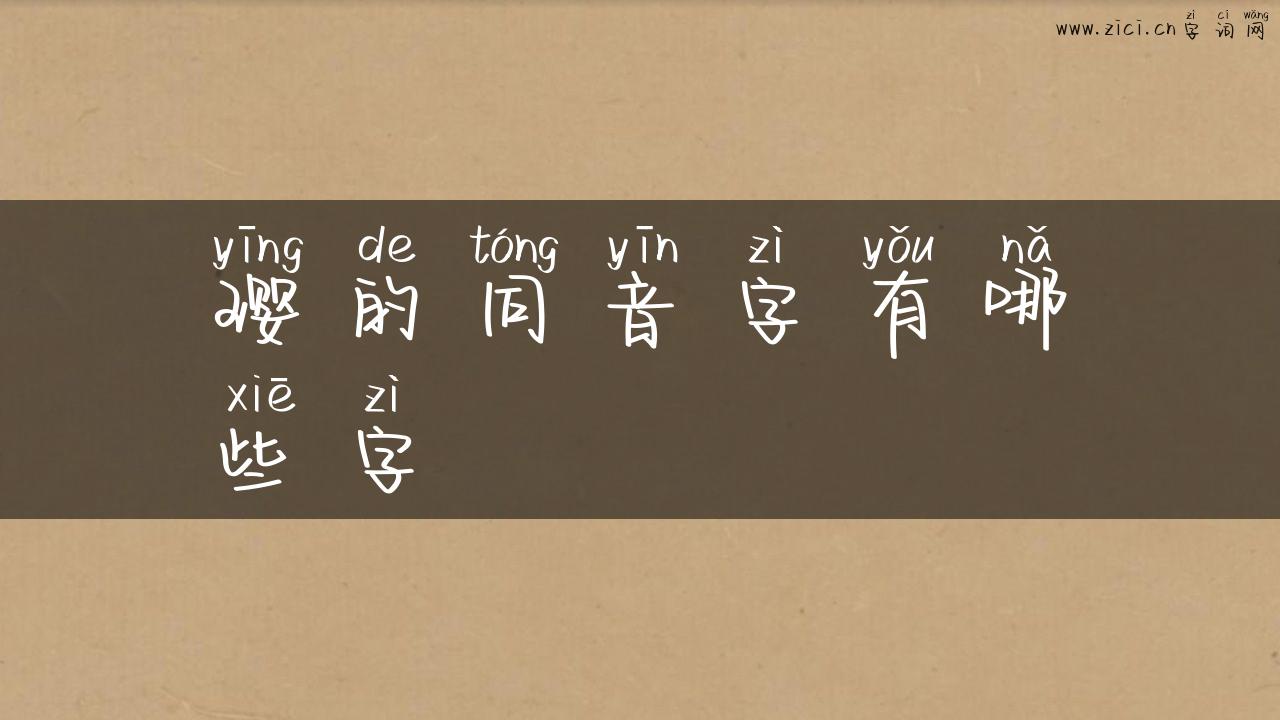 www.zici.cn zì cí wǎng
字词网
yīng de tóng yīn zì yǒu nǎ
璎的同音字有哪
xiē zì
些字